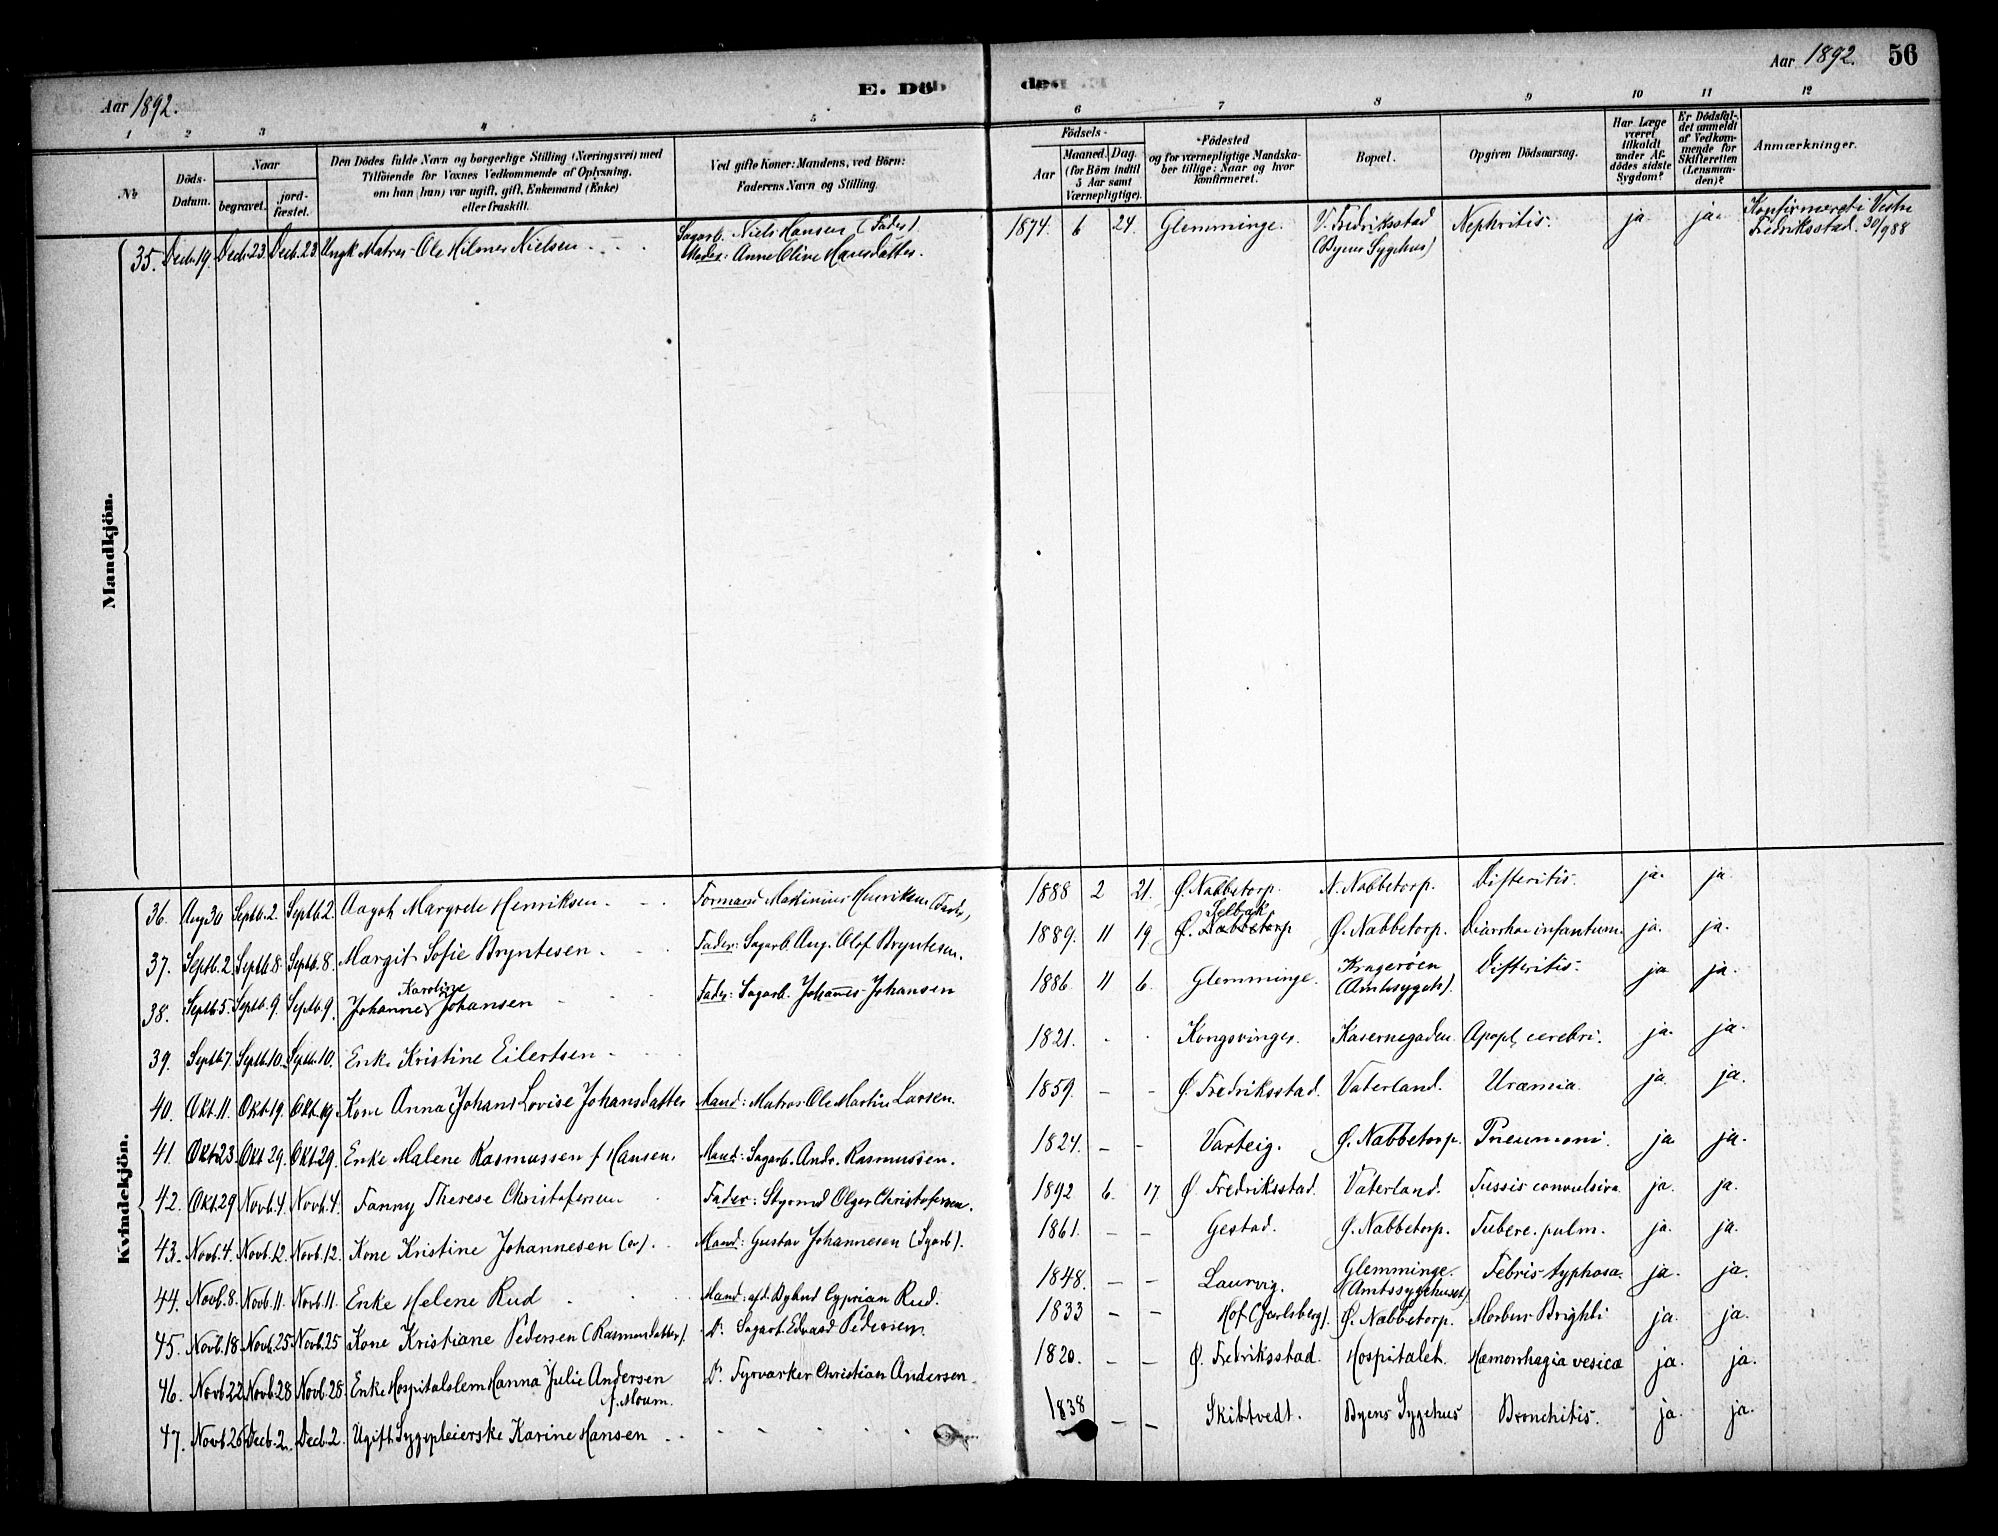 Aar 1892.
E. Dö
de.
Aar 1892. 56
1 2 3 4 5 6 7 8 9 10 11 12
No.
Döds-Datum.
Naar
begravet.
jord-fæstet.
Den Dödes fulde Navn og borgerlige Stilling (Næringsvei) med
Tilföiende for Voxnes Vedkommende af Oplysning,
om han (hun) var ugift, gift, Enkemand (Enke)
eller fraskilt.
Ved gifte Koner: Mandens, ved Börn:
Faderens Navn og Stilling.
Födsels-
Aar
Maaned. Dag.
(for Börn indtil
5 Aar samt
Værnepligtige).
Födested
og for værnepligtige Mandska-
ber tillige: Naar og hvor
konfirmeret.
Bopæl.
Opgiven Dödsaarsag.
Har Læge
været
tilkaldt
under Af-
dödes sidste
Sygdom?
Er Dödsfal-
det anmeldt
af Vedkom-
mende for
Skifteretten
(Lensman-
den)?
Anmærkninger.
Mandkjön.
35. Decb. 19. Decb. 23. Decb. 23 Ungk. Matros Ole Hilmer Nielsen. Sagarb. Niels Hansen (Fader) 1874. 6 24. Glemminge. V. Fredriksstad Nephritis. ja. ja. Konfirmeret i Vestre
Moder: Anne Olive Hansdatter. (Byens Sygehus) Fredriksstad. 30/9 88
Kvindekjön.
36. Aug 30 Septb. 2. Septb. 2. Aagot Margrete Henriksen. Formand Mathinius Henriksen (Fader) 1888 2 21. Ø. Nabbetorp. N. Nabbetorp. Difteritis. ja. ja.
Selbak
37. Septb. 2. Septb. 8. Septb. 8. Margit Sofie Bryntesen Fader: Sagarb. Aug. Olof Bryntesen. 1889. 11 19 Ø. Nabbetorp Ø. Nabbetorp. Diarrhoe infantum. ja. ja.
Karoline
38. Septb. 5. Septb. 9. Septb. 9. Johanne Johansen Fader: Sagarb. Johannes Johansen 1886 11 6. Glemminge. Kragerøen (Amtssygeh). Difteritis. ja ja.
39. Septb. 7. Septb. 10. Septb. 10. Enke Kristine Eilertsen 1821. Kongsvinger. Kasernegaden. Apopl. cerebri. ja. ja.
40. Okt. 11. Okt. 19. Okt. 19. Kone Anna Johans Lovise Johansdatter Mand: Matros Ole Martin Larsen. 1859. – – Ø. Fredriksstad. Vaterland. Uræmia ja ja.
41. Okt. 23. Okt 29. Okt 29. Enke Malene Rasmussen f. Hansen. Mand: Sagarb. Andr. Rasmussen. 1824. – – Varteig. Ø. Nabbetorp. Pneumoni. ja ja.
42. Okt. 29 Novb. 4. Novb. 4. Fanny Therese Christofersen Fader: Styrmd Olger Christofersen. 1892 6. 17. Ø Fredriksstad. Vaterland. Tussis convulsiva ja. ja.
43. Novb. 4. Novb. 12. Novb. 12. Kone Kristine Johannesen Mand: Gustav Johannesen (Sgarb). 1861. – – Gestad. Ø. Nabbetorp. Tuberc. pulm. ja. ja.
44. Novb. 8. Novb. 11. Novb. 11. Enke Helene Rud Mand: afd. Bybud Cyprian Rud. 1848. – – Laurvig. Glemminge. (Amtssygehuset) Febris typhosa. ja. ja.
45. Novb. 18 Novb. 25 Novb. 25 Kone Kristiane Pedersen (Rasmusdatter). D: Sagarb. Edvard Pedersen. 1833 – – Hof (Jarlsberg). Ø. Nabbetorp. Morbus Brighti ja. ja.
46. Novb 22. Novb. 28 Novb. 28. Enke Hospitalslem Hanna Julie Andersen D: Fyrvarker Christian Andersen. 1820. – – Ø. Fredriksstad. Hospitalet. Hæmorrhagia vesicæ ja. ja.
f. Moum.
47. Novb. 26 Decb. 2. Decb. 2. Ugift Sygepleierske Karine Hansen 1838 – – Skibtvedt. Byens Sygehus Bronchitis. ja. ja.